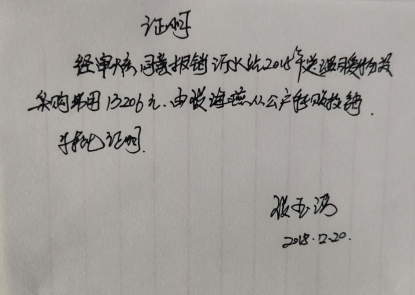 证明
经审核,同意报销沂水站2018年送温暖物资
采购费用13206元.由张海燕从公户自取报销.
特此证明.
张玉
2018.12.20.